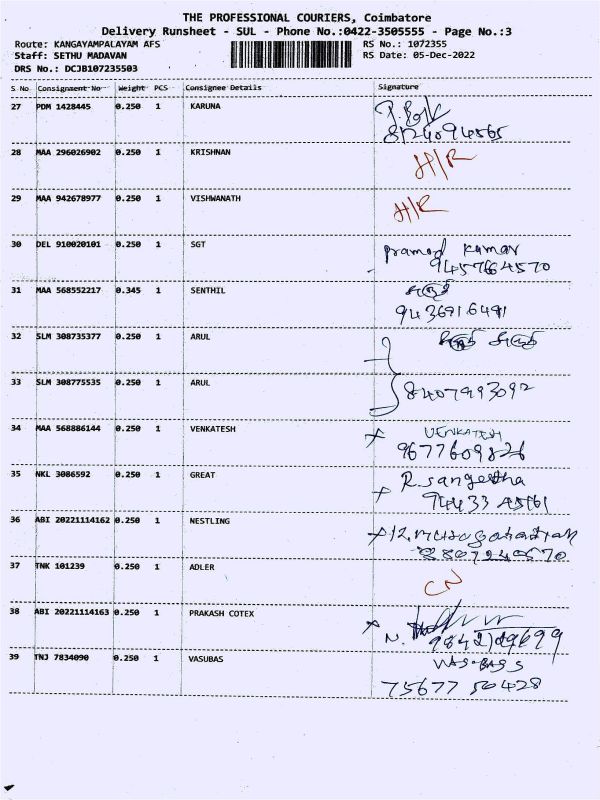 THE PROFESSIONAL COURIERS, Coimbatore
Delivery Runsheet - SUL - Phone No.:0422-3505555 - Page No.:3
Route: KANGAYAMPALAYAM AFS RS No.: 1072355
Staff: SETHU MADAVAN RS Date: 05-Dec-2022
DRS No.: DCJB107235503
S No Consignment No Weight PCS Consignee Details Signature
27 PDM 1428445 0.250 1 KARUNA
8124094565
28 MAA 296026902 0.250 1 KRISHNAN H/R
29 MAA 942678977 0.250 1 VISHWANATH H/R
30 DEL 910020101 0.250 1 SGT pramod kumar
9457664570
31 MAA 568552217 0.345 1 SENTHIL
9436916491
32 SLM 308735377 0.250 1 ARUL
33 SLM 308775535 0.250 1 ARUL 8407993092
34 MAA 568886144 0.250 1 VENKATESH VENKATESH
9677609826
35 NKL 3086592 0.250 1 GREAT R.sangeetha
94433
36 ABI 20221114162 0.250 1 NESTLING
37 TNK 101239 0.250 1 ADLER CN
38 ABI 20221114163 0.250 1 PRAKASH COTEX N.
39 TNJ 7834090 0.250 1 VASUBAS
75677 50428